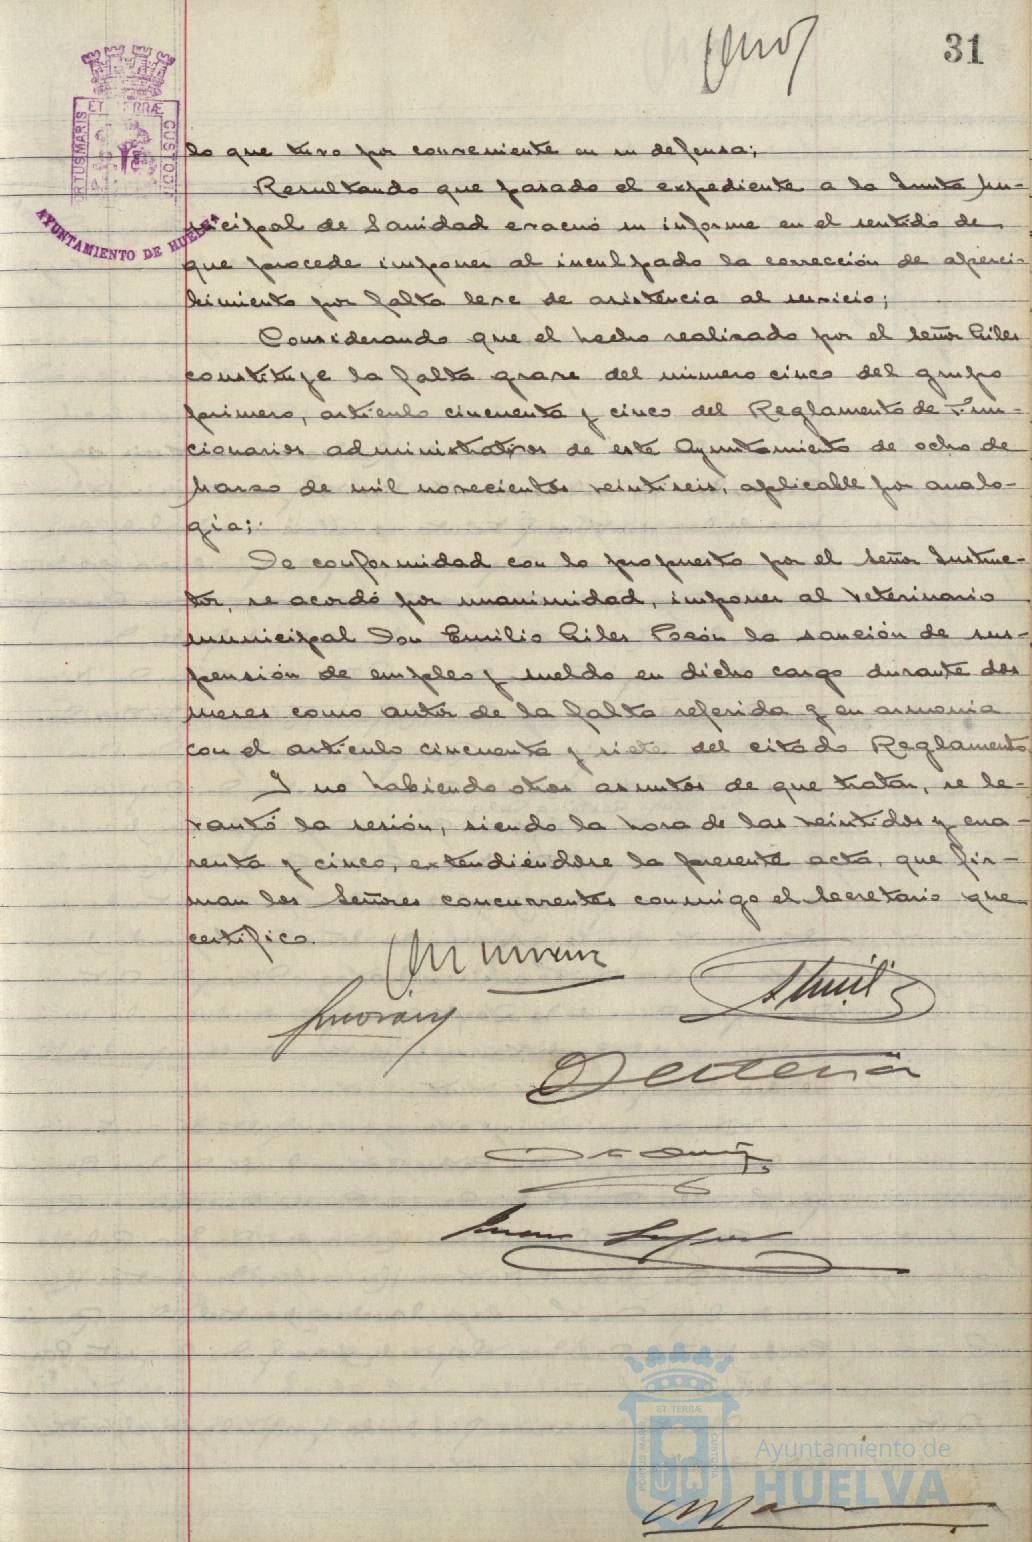 31
ET TERRÆ
CUSTODIA
AYUNTAMIENTO DE HUELVA
lo que tuvo por conveniente en su defensa;
Resultando que pasado el expediente a la Junta Mu-
nicipal de Sanidad evacuó su informe en el sentido de
que procede imponer al inculpado la corrección de aperci-
bimiento por falta leve de asistencia al servicio;
Considerando que el hecho realizado por el señor Giles
constituye la falta grave del número cinco del grupo
primero, artículo cincuenta y cinco del Reglamento de Fun-
cionarios administrativos de este Ayuntamiento de ocho de
Marzo de mil novecientos veintiseis, aplicable por analo-
gía;
De conformidad con lo propuesto por el señor Instruc-
tor, se acordó por unanimidad, imponer al Veterinario
municipal Don Emilio Giles la sanción de sus-
pensión de empleo y sueldo en dicho cargo durante dos
meses como autor de la falta referida y en armonía
con el artículo cincuenta y siete del citado Reglamento.
Y no habiendo otros asuntos de que tratar, se le-
vantó la sesión, siendo la hora de las veintidos y cua-
renta y cinco, extendiéndose la presente acta, que fir-
man los Señores concurrentes conmigo el Secretario que
certifico.
ET TERRÆ
PORTUS MARIS
CUSTODIA
Ayuntamiento de
HUELVA